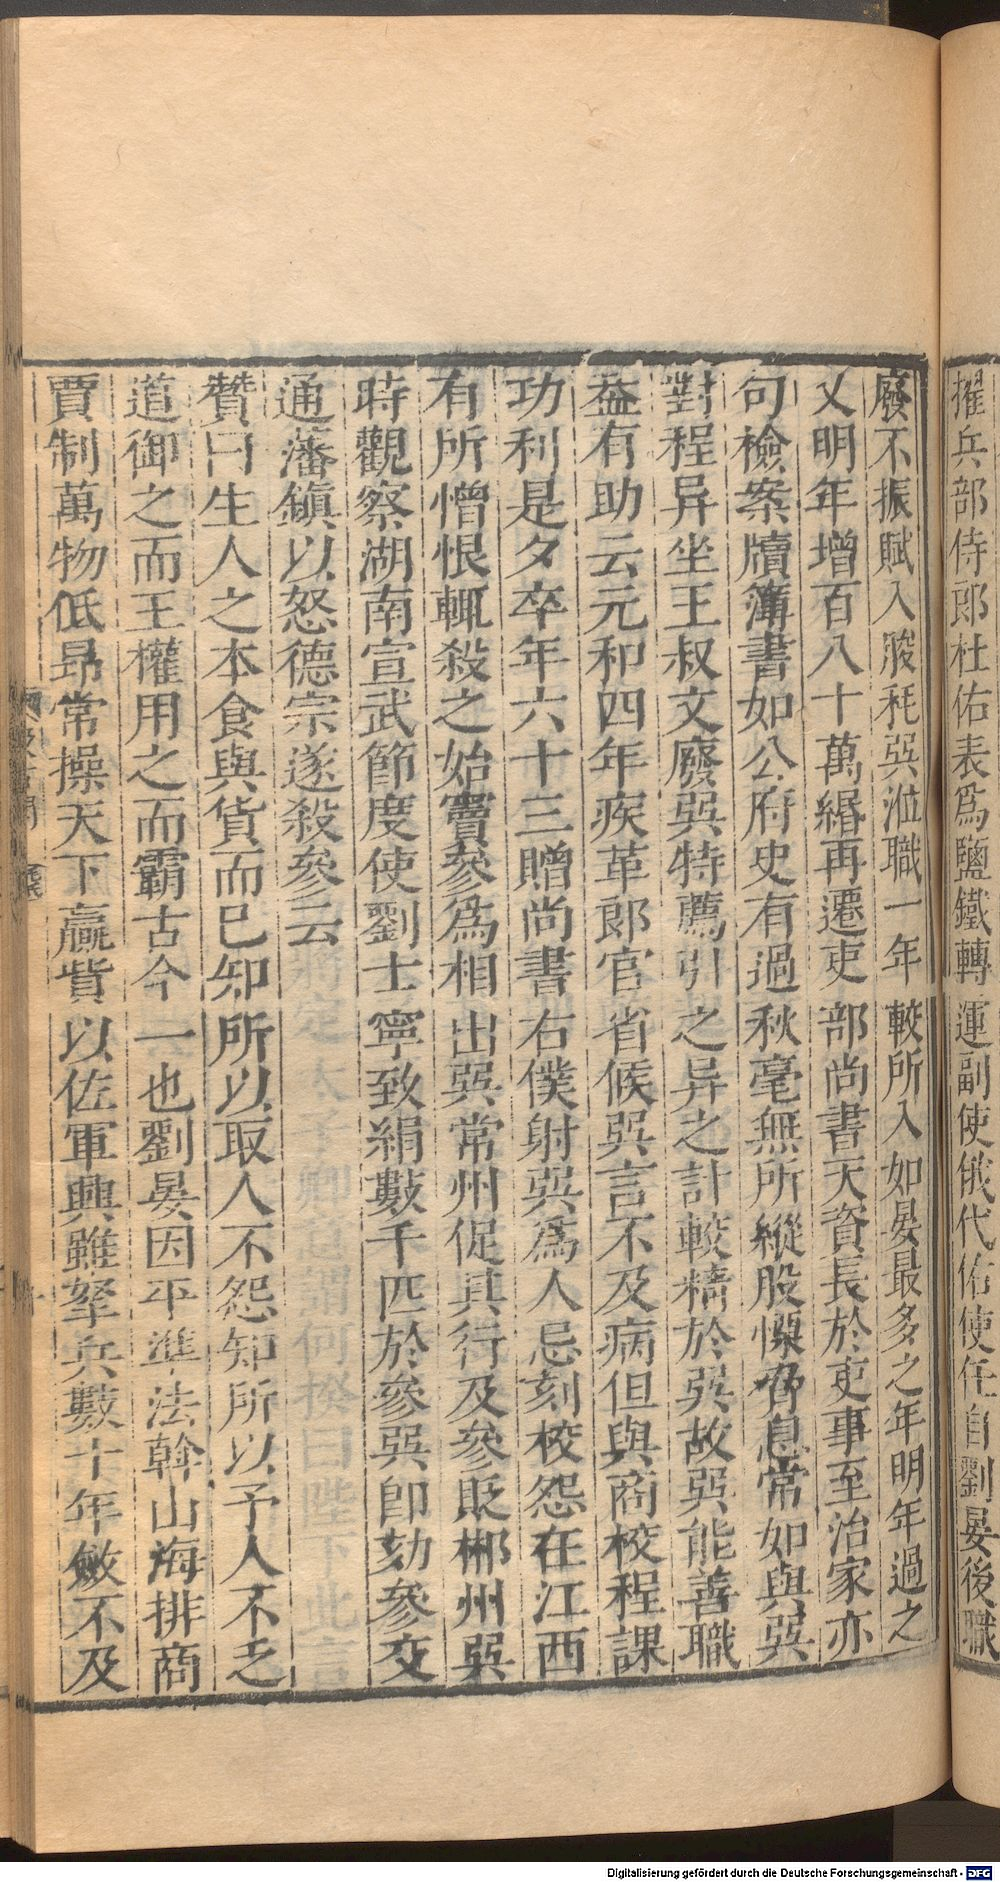 擢兵部侍郎杜佑表爲鹽鐵轉運副使俄代佑使任自劉晏後職
廢不振賦入朘秏巽涖職一年較所入如晏最多之年明年過之
又明年增百八十萬緡再遷吏部尚書天資長於吏事至治家亦
句檢案牘簿書如公府史有過秋毫無所縱股慄脅息常如與巽
對程异坐王叔文廢巽特薦引之异之計較精於巽故巽能善職
益有助云元和四年疾革郎官省候巽言不及病但與商校程課
功利是夕卒年六十三贈尚書右僕射巽爲人忌刻校怨在江西
有所憎恨輒殺之始竇參爲相出巽常州促其行及參貶郴州巽
時觀察湖南宣武節度使劉士寧致絹數千匹於參巽卽劾參交
通藩鎮以怒德宗遂殺參云
贊曰生人之本食與貨而已知所以取人不怨知所以予人不乏
道御之而王權用之而霸古今一也劉晏因平準法斡山海排商
賈制萬物低昂常操天下贏貲以佐軍興雖拏兵數十年斂不及
Digitalisierung gefördert durch die Deutsche Forschungsgemeinschaft - DFG